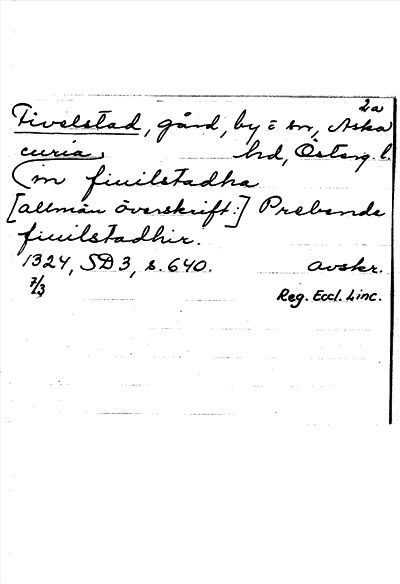 2a
Fivelstad, gård, by = sn, Aska
curia, hd, Österg. l.
(in fiuilstadha
[allmän överskrift:] Prebende
fiuilstadhir.
1324, SD 3, s. 640. avskr.
7/3 Reg. Eccl. Linc.